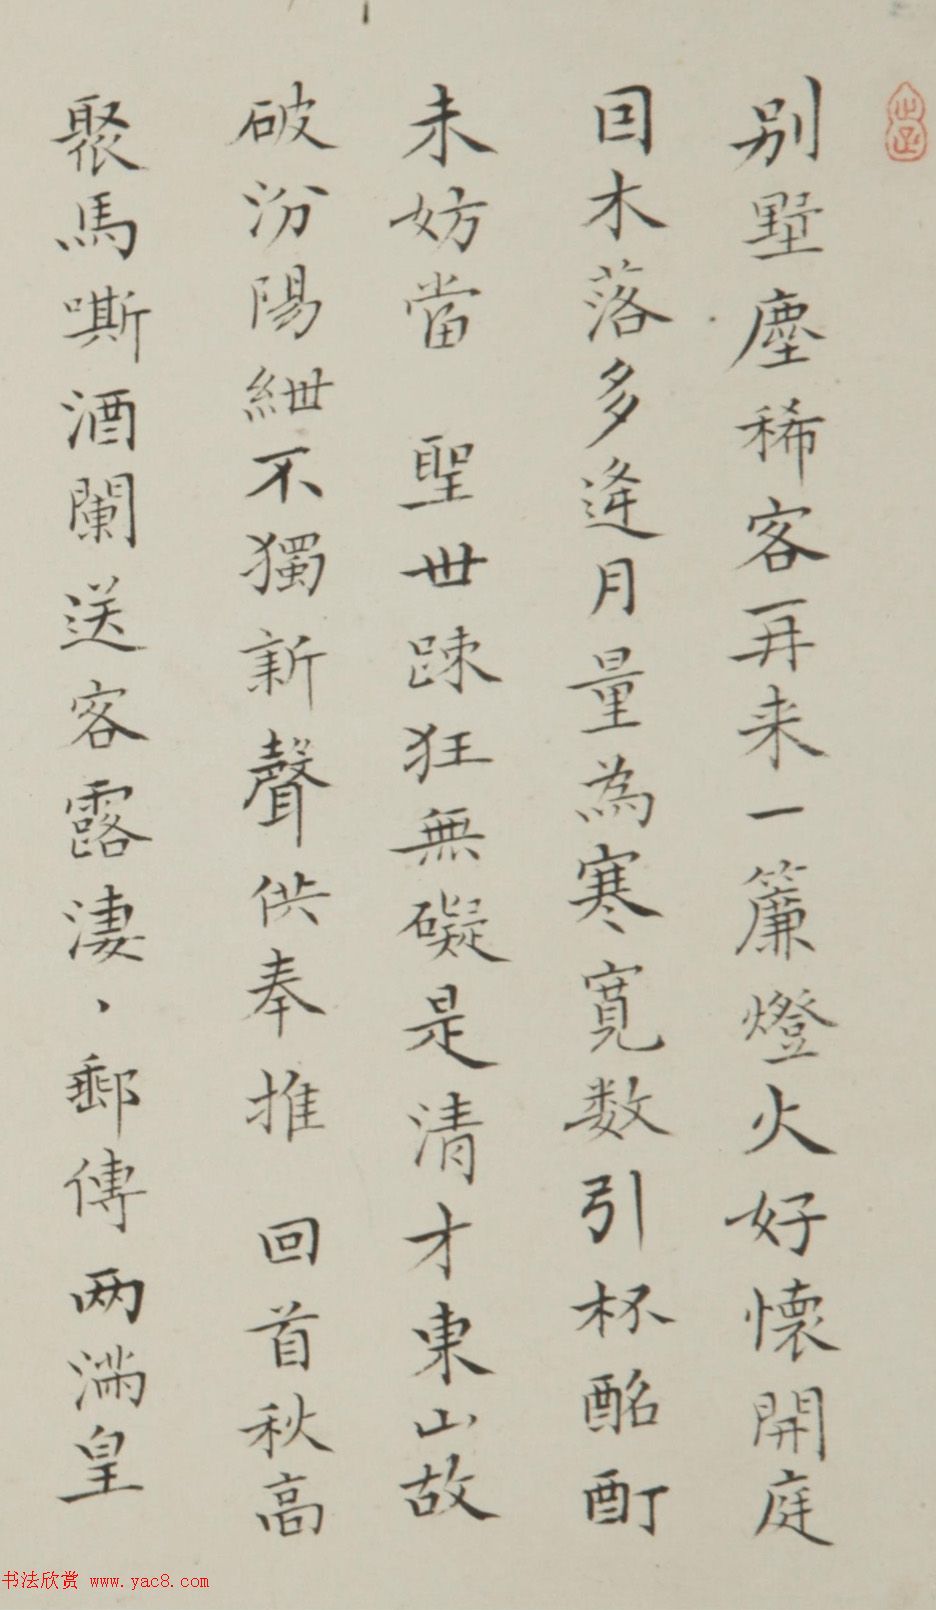 别墅塵稀客再来一簾燈火好懷開庭
因木落多逢月量為寒寬数引杯酩酊
未妨當 聖世踈狂無礙是清才東山故
破汾陽紲不獨新聲供奉推 回首秋高
聚馬嘶酒闌送客露淒、郵傳两湍皇
书法欣赏 www.yac8.com